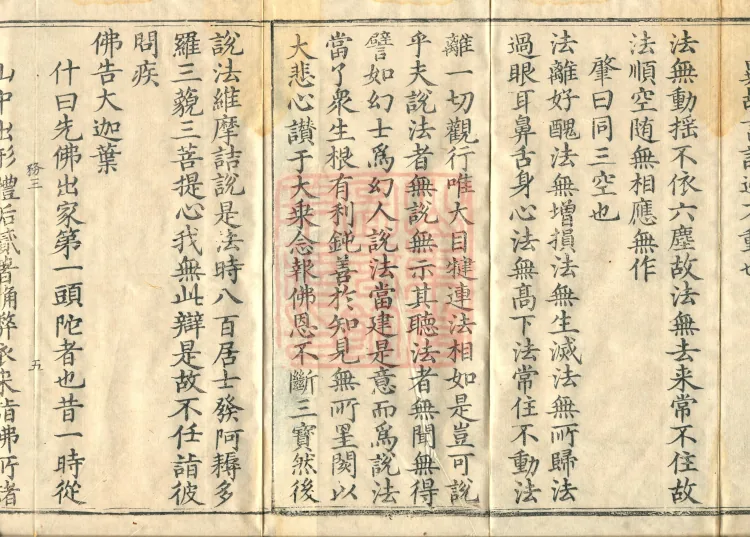 動也
法無動搖不依六塵故法無去来常不住故
法順空随無相應無作
肇曰同三空也
法離好醜法無增損法無生滅法無所歸法
過眼耳鼻舌身心法無髙下法常住不動法
離一切觀行唯大目犍連法相如是豈可說
乎夫說法者無說無示其聽法者無聞無得
譬如幻士爲幻人說法當建是意而爲說法
當了衆生根有利鈍善於知見無所罣閡以
大悲心讃于大乗念報佛恩不斷三寶然後
說法維摩詰說是法時八百居士發阿耨多
羅三藐三菩提心我無此辯是故不任詣彼
問疾
佛告大迦葉
什曰先佛出家第一頭陀者也昔一時從
務三 五
山中出形體垢膩著弊衣来詣佛所諸